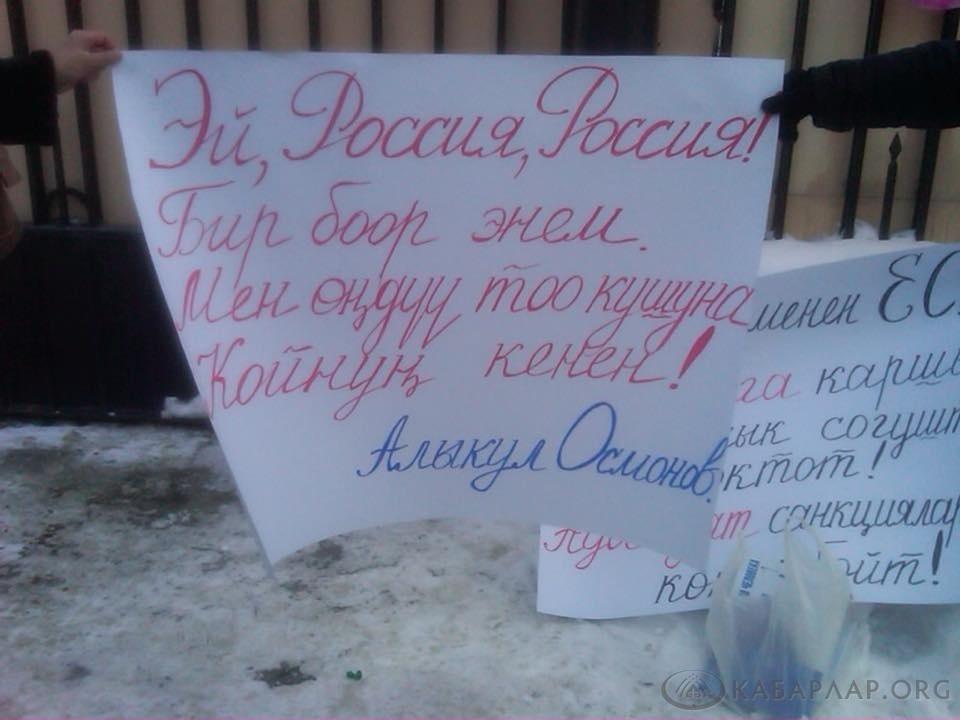 Эй, Россия, Россия!
Бир боор энем.
Мен өңдүү тоо кушуна
Койнуң кенен!
Алыкул Осмонов.
менен ЕС
га каршы
согушт
ктот!
ат санкциялар
йт!
КАБАРЛАР.ORG